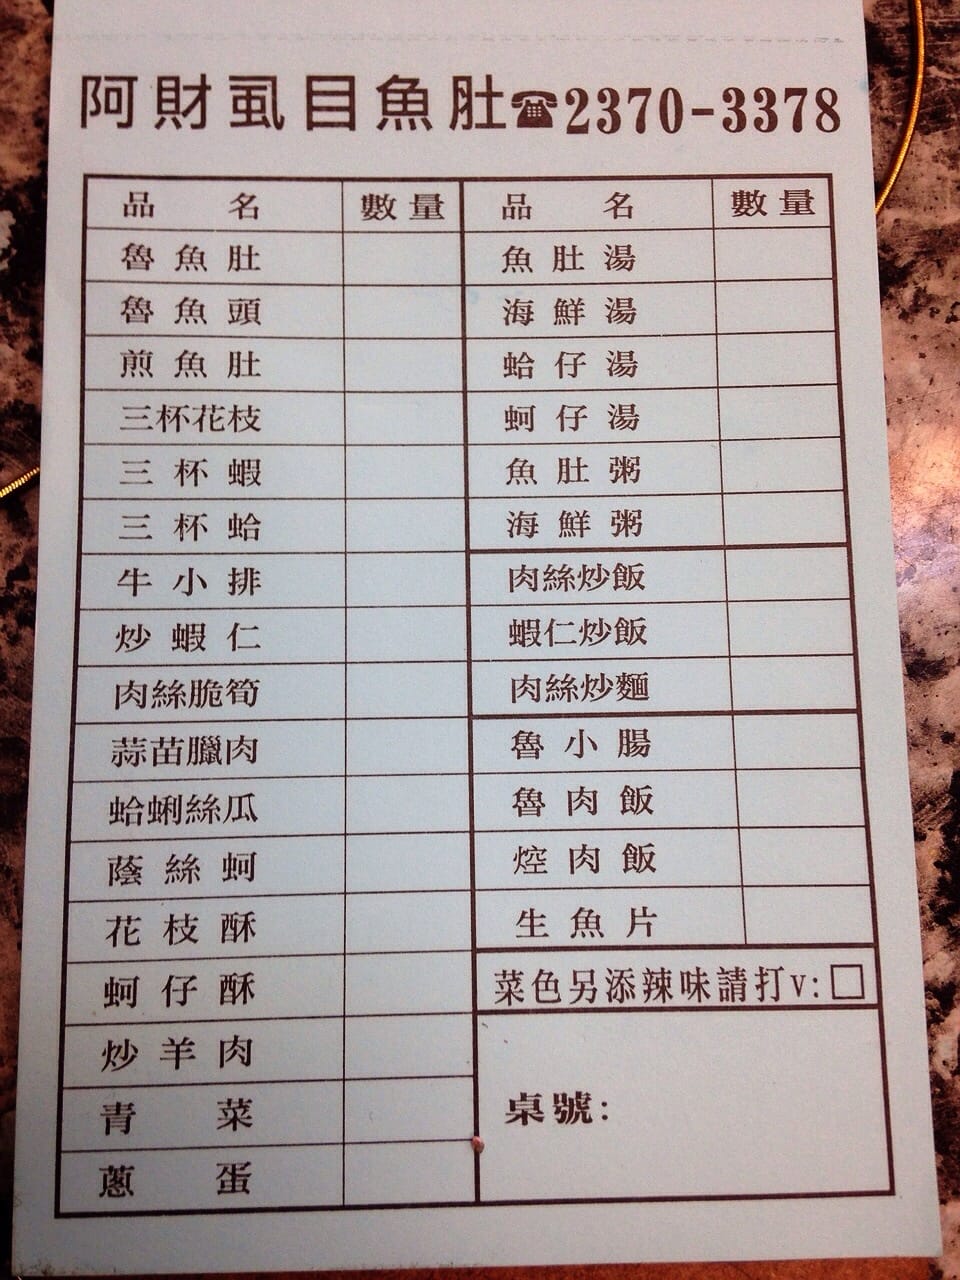 阿財虱目魚肚☎2370-3378
品名 數量
魯魚肚
魯魚頭
煎魚肚
三杯花枝
三杯蝦
三杯蛤
牛小排
炒蝦仁
肉絲脆筍
蒜苗臘肉
蛤蜊絲瓜
蔭絲蚵
花枝酥
蚵仔酥
炒羊肉
青菜
蔥蛋
品名 數量
魚肚湯
海鮮湯
蛤仔湯
蚵仔湯
魚肚粥
海鮮粥
肉絲炒飯
蝦仁炒飯
肉絲炒麵
魯小腸
魯肉飯
焢肉飯
生魚片
菜色另添辣味請打v:□
桌號: